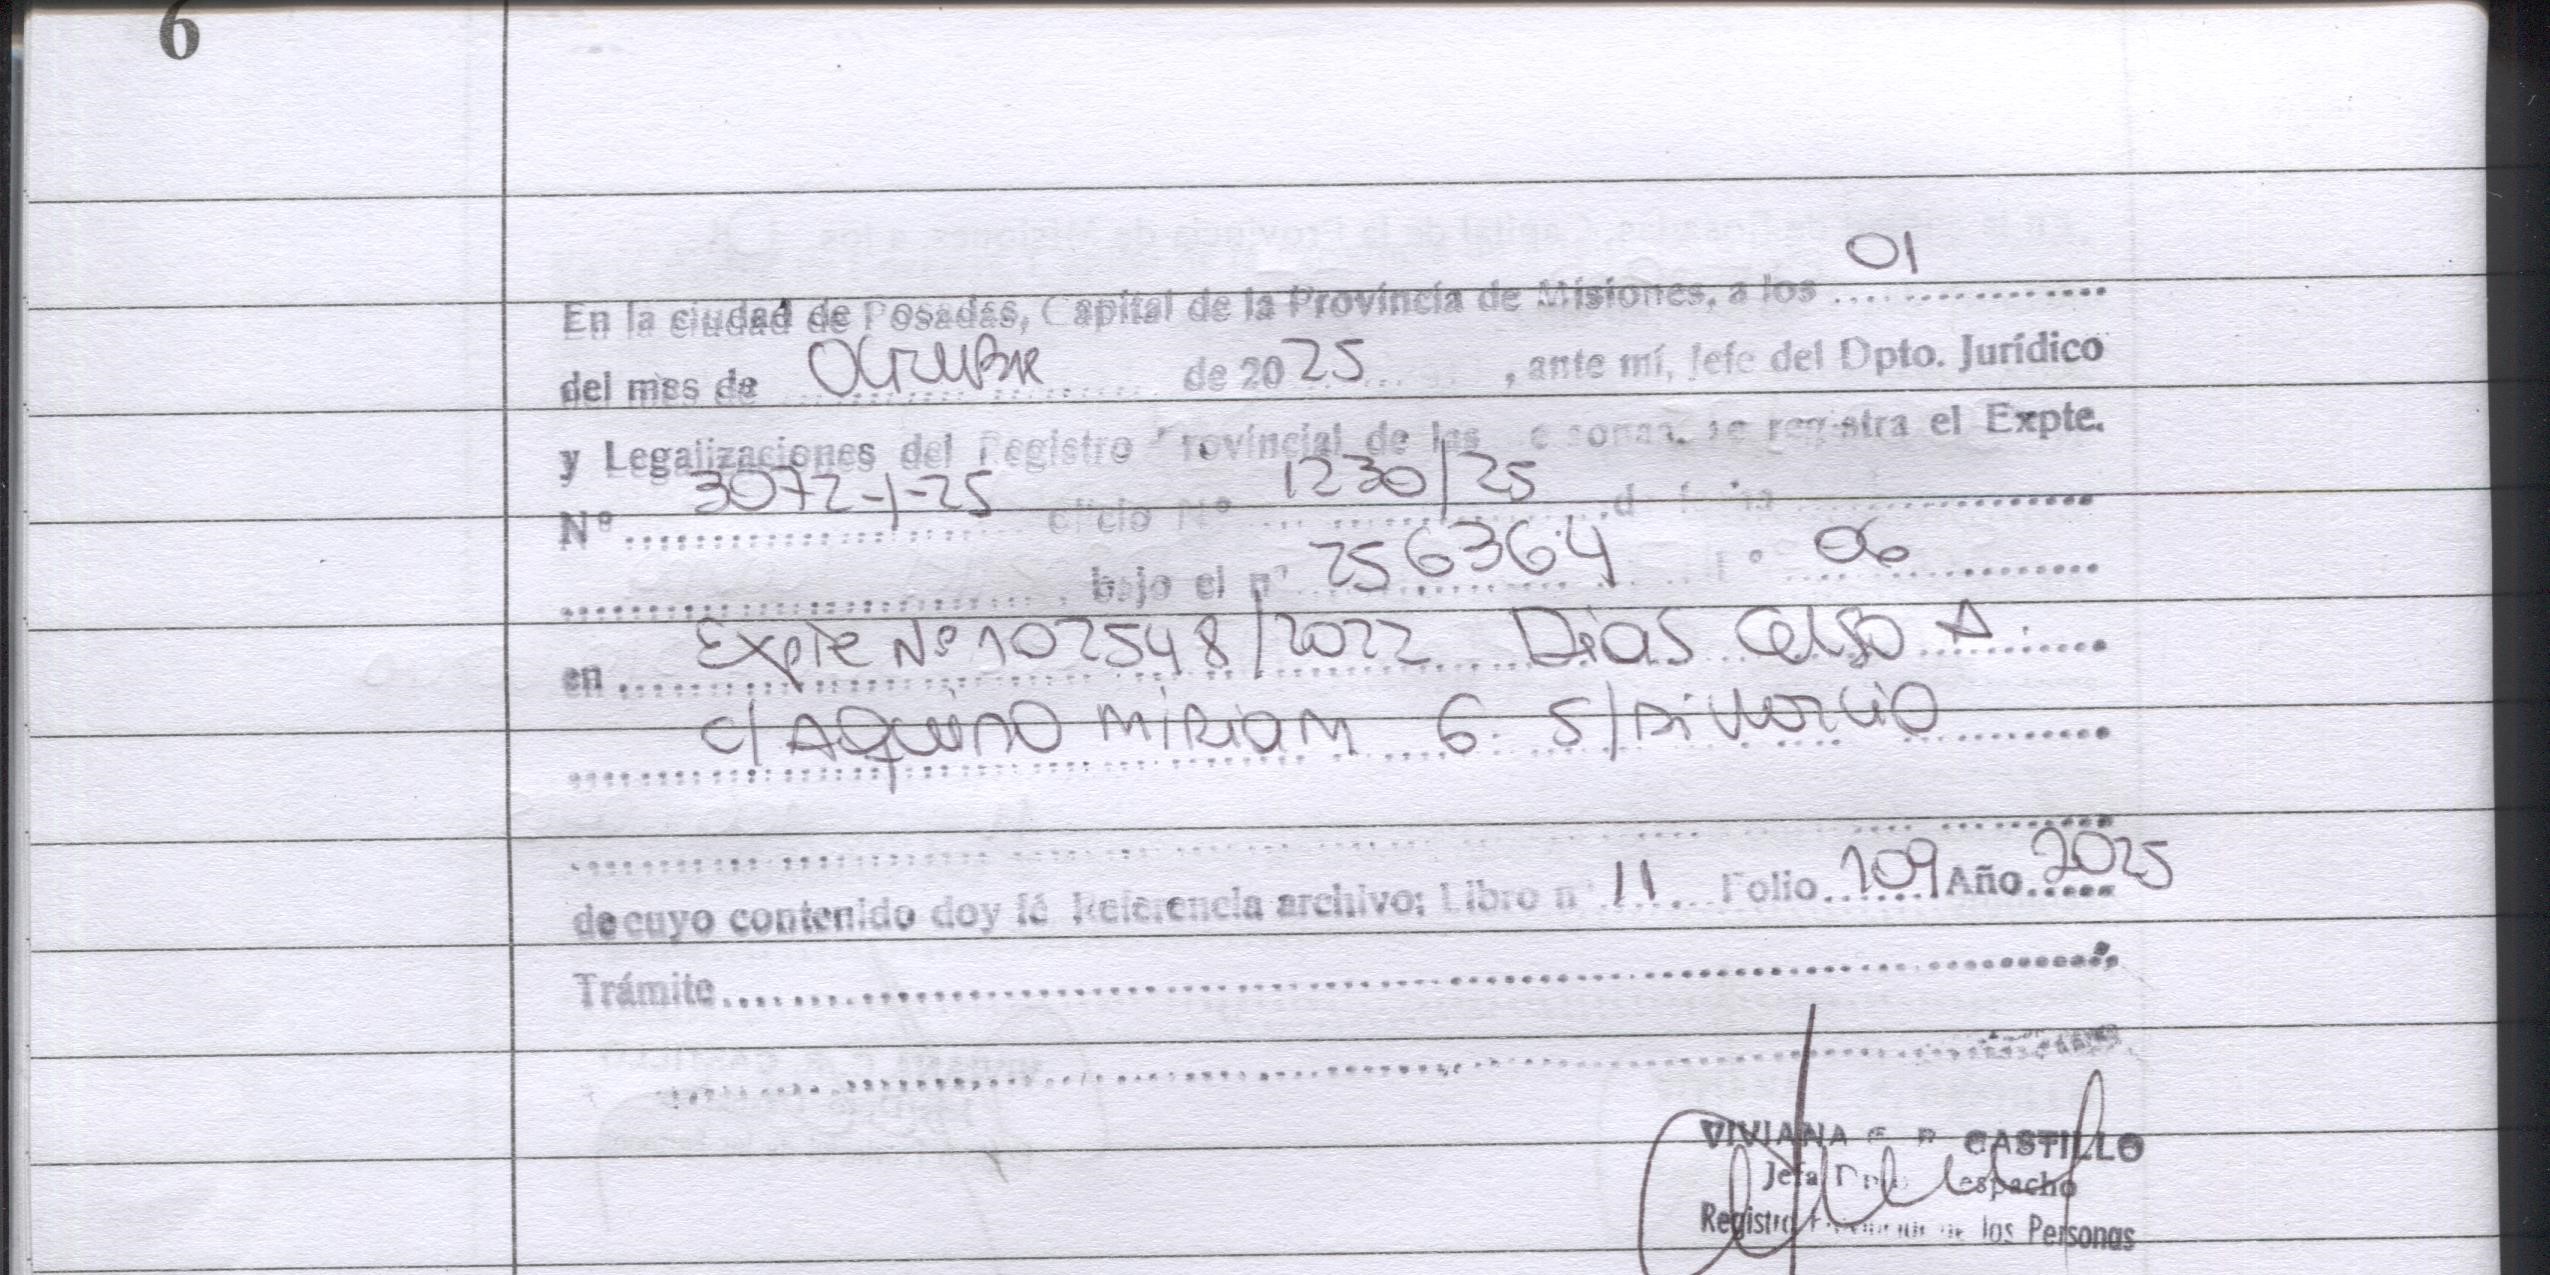 6
En la ciudad de Posadas, Capital de la Provincia de Misiones, a los 01
del mes de Octubre de 2025, ante mí, Jefe del Dpto. Jurídico
y Legalizaciones del Registro Provincial de las Personas, se registra el Expte.
Nº 3072-1-25 oficio Nº 1230/25
bajo el nº 256364 Fº 06
en Expte Nº 102548/2022 Dias Celso A.
c/ Aquino Miriam G. S/ Divorcio
de cuyo contenido doy fé Referencia archivo: Libro nº 11 Folio 109 Año 2025
Trámite
VIVIANA CASTILLO
Jefa Despacho
Registro de las Personas